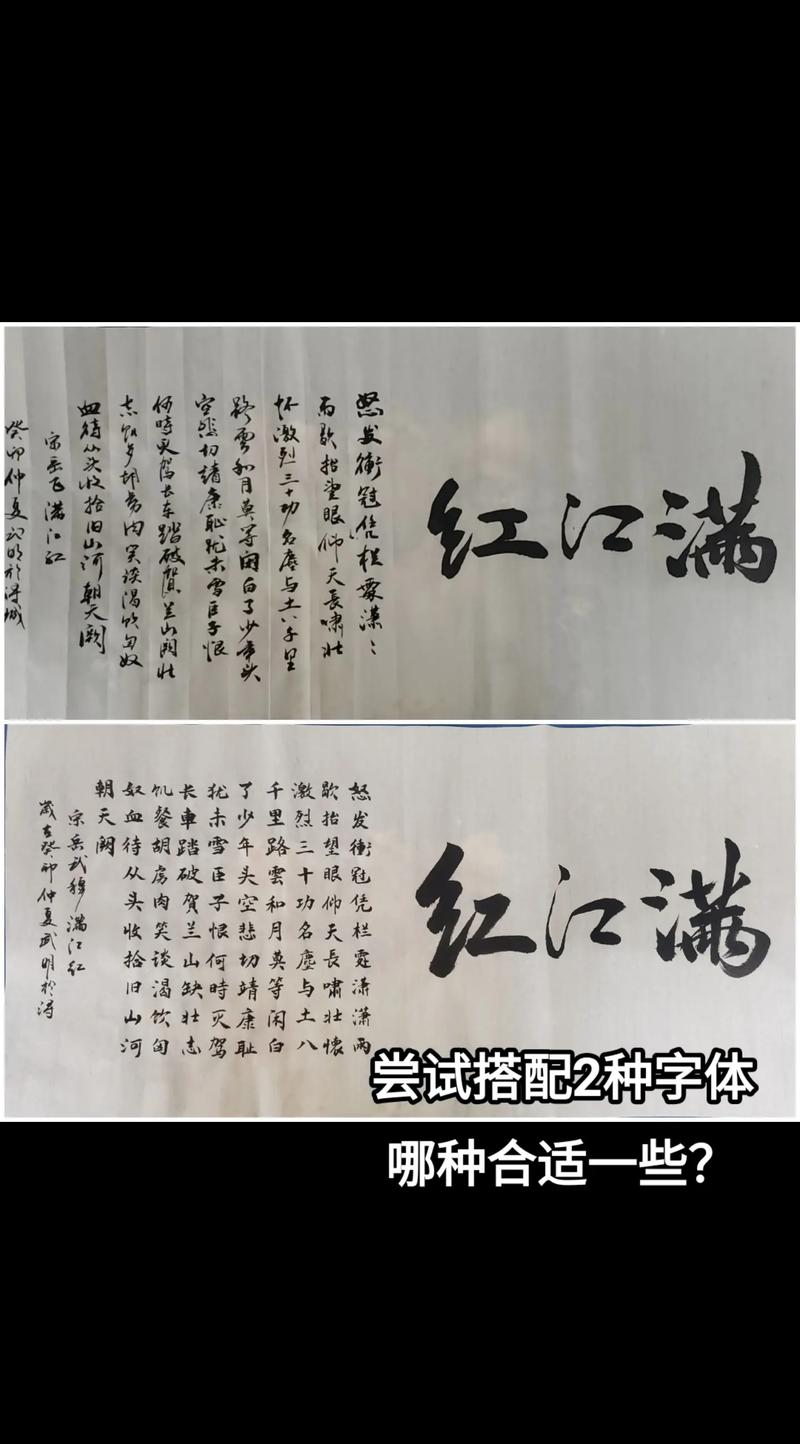 满江红
怒发衝冠凭栏霖潇〻
雨歇抬望眼仰天長啸壮
怀激烈三十功名塵与土八千里
路雲和月莫等闲白了少年头
空悲切靖康耻犹未雪臣子恨
何時灭驾长车踏破賀兰山阙壮
志饥餐胡虏肉笑谈渴饮匈奴
血待从头收拾旧山河朝天阙
宗岳飞满江红
癸卯仲夏武明於浔城
满江红
怒发衝冠凭栏霆潇潇雨
歇抬望眼仰天長啸壮懷
激烈三十功名塵与土八
千里路雲和月莫等闲白
了少年头空悲切靖康耻
犹未雪臣子恨何時灭驾
长車踏破賀兰山缺壮志
饥餐胡虏肉笑谈渴饮匈
奴血待从头收拾旧山河
朝天阙
宗岳武穆满江红
歲在癸卯仲夏武明於浔
尝试搭配2种字体
哪种合适一些？